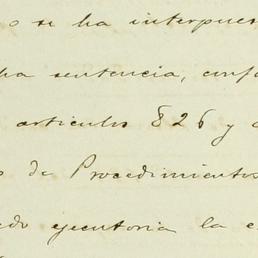 o se ha interpues
ha sentencia, conf
articulos 826 y
de Procedimientos
edo ejecutoria la e